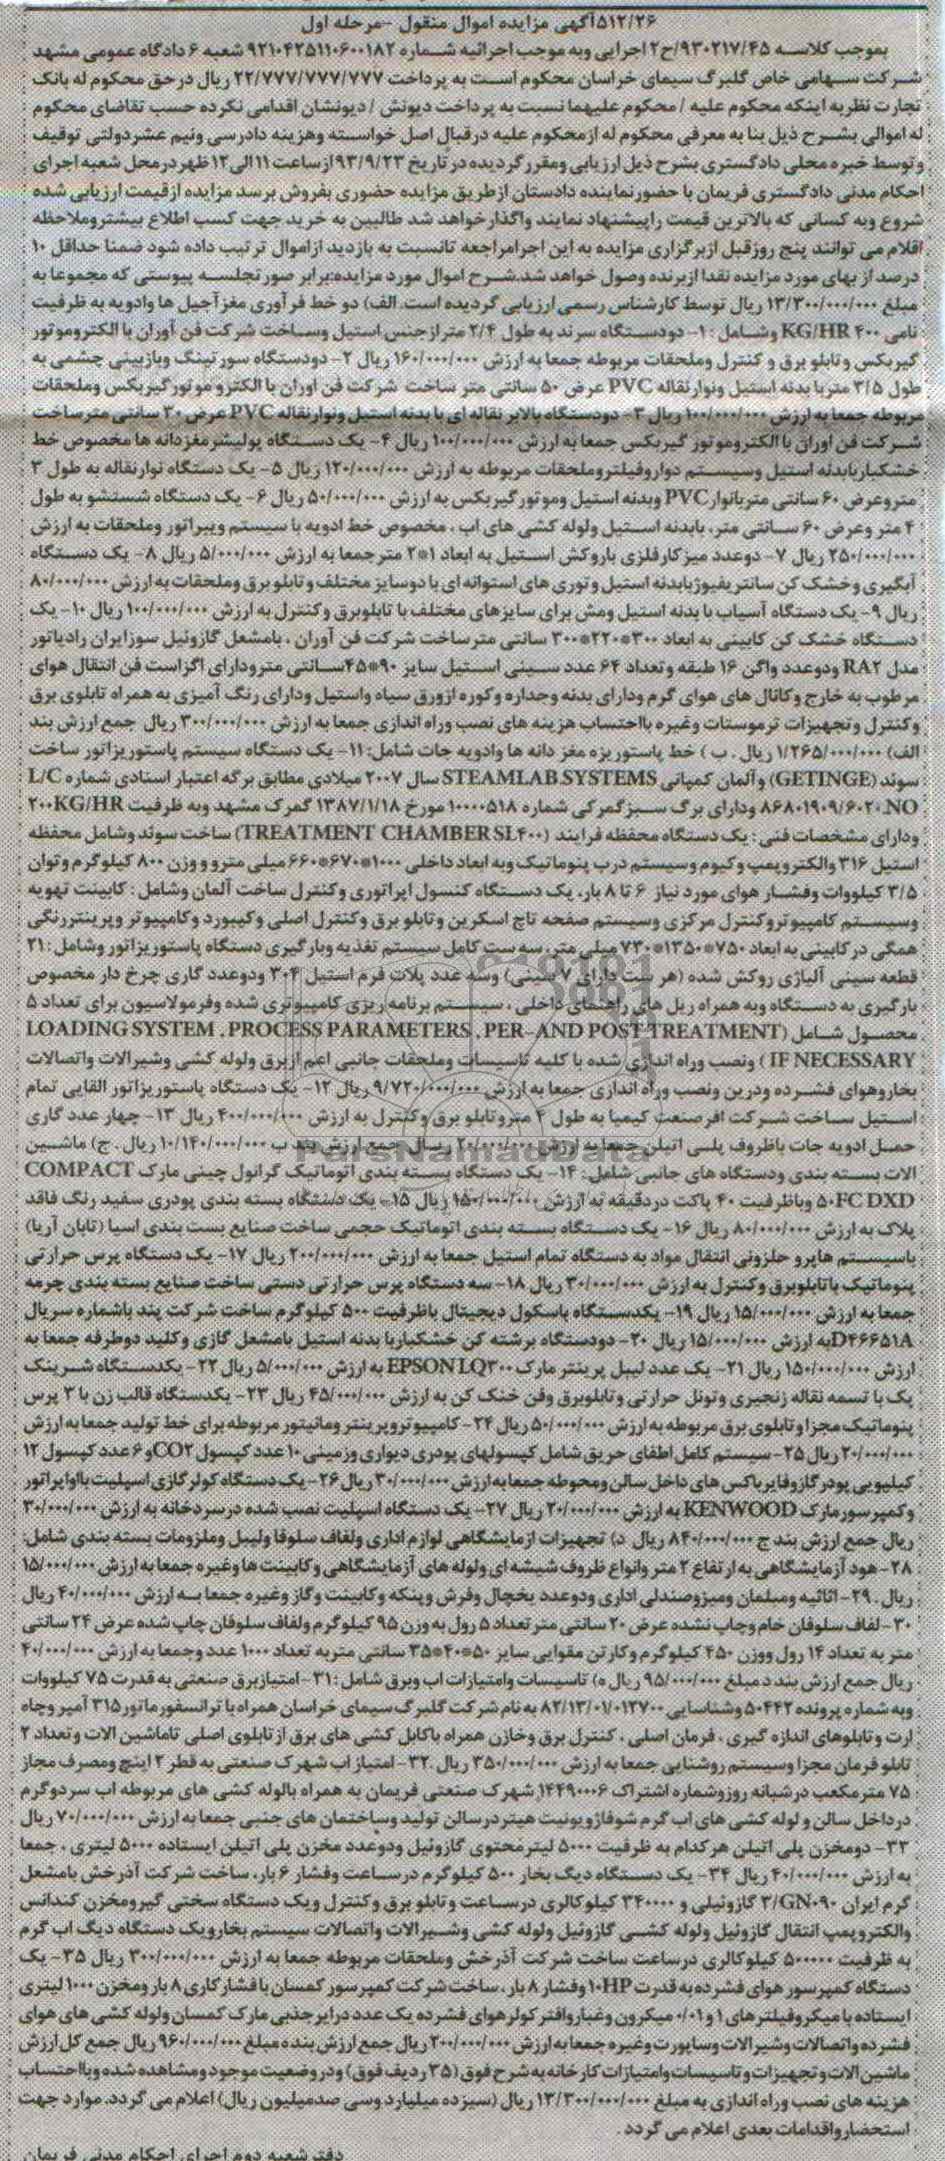 ۵۱۲/۲۶آگهی مزایده اموال منقول -مرحله اول
بموجب کلاسه ۹۳۰۲۱۷/۴۵/ح۲ اجرایی وبه موجب اجرائیه شماره ۹۲۱۰۴۲۵۱۱۰۶۰۰۱۸۲ شعبه ۶ دادگاه عمومی مشهد
شرکت سهامی خاص گلبرگ سیمای خراسان محکوم است به پرداخت ۲۲/۷۷۷/۷۷۷/۷۷۷ ریال درحق محکوم له بانک
تجارت نظربه اینکه محکوم علیه / محکوم علیهما نسبت به پرداخت دیونش / دیونشان اقدامی نکرده حسب تقاضای محکوم
له اموالی بشرح ذیل بنا به معرفی محکوم له ازمحکوم علیه درقبال اصل خواسته وهزینه دادرسی ونیم عشردولتی توقیف
وتوسط خبره محلی دادگستری بشرح ذیل ارزیابی ومقررگردیده در تاریخ ۹۳/۹/۲۳ ازساعت ۱۱الی۱۲ ظهردرمحل شعبه اجرای
احکام مدنی دادگستری فریمان با حضورنماینده دادستان ازطریق مزایده حضوری بفروش برسد مزایده ازقیمت ارزیابی شده
شروع وبه کسانی که بالاترین قیمت راپیشنهاد نمایند واگذارخواهد شد طالبین به خرید جهت کسب اطلاع بیشتروملاحظه
اقلام می توانند پنج روزقبل ازبرگزاری مزایده به این اجرامراجعه تانسبت به بازدید ازاموال ترتیب داده شود ضمنا حداقل ۱۰
درصد از بهای مورد مزایده نقدا ازبرنده وصول خواهد شد.شرح اموال مورد مزایده:برابر صورتجلسه پیوستی که مجموعا به
مبلغ ۱۳/۳۰۰/۰۰۰/۰۰۰ ریال توسط کارشناس رسمی ارزیابی گردیده است. الف) دو خط فرآوری مغزآجیل ها وادویه به ظرفیت
نامی ۴۰۰ KG/HR وشامل : ۱- دودستگاه سرند به طول ۲/۴ مترازجنس استیل وساخت شرکت فن آوران با الکتروموتور
گیربکس و تابلو برق و کنترل وملحقات مربوطه جمعا به ارزش ۱۶۰/۰۰۰/۰۰۰ ریال ۲- دودستگاه سورتینگ وبازبینی چشمی به
طول ۳/۵ متربا بدنه استیل ونوارنقاله PVC عرض ۵۰ سانتی متر ساخت شرکت فن اوران با الکترو موتورگیربکس وملحقات
مربوطه جمعا به ارزش ۱۰۰/۰۰۰/۰۰۰ ریال ۳- دودستگاه بالابر نقاله ای با بدنه استیل ونوارنقاله PVC عرض ۳۰ سانتی مترساخت
شرکت فن اوران با الکتروموتور گیربکس جمعا به ارزش ۱۰۰/۰۰۰/۰۰۰ ریال ۴- یک دستگاه پولیشرمغزدانه ها مخصوص خط
خشکباربابدنه استیل وسیستم دوارو فیلتروملحقات مربوطه به ارزش ۱۲۰/۰۰۰/۰۰۰ ریال ۵- یک دستگاه نوارنقاله به طول ۳
متروعرض ۶۰ سانتی متربانوارPVC وبدنه استیل وموتورگیربکس به ارزش ۵۰/۰۰۰/۰۰۰ ریال ۶- یک دستگاه شستشو به طول
۴ متر وعرض ۶۰ سانتی متر، بابدنه استیل ولوله کشی های اب ، مخصوص خط ادویه با سیستم ویبراتور وملحقات به ارزش
۲۵۰/۰۰۰/۰۰۰ ریال ۷- دوعدد میزکارفلزی باروکش استیل به ابعاد ۱*۲ مترجمعا به ارزش ۵/۰۰۰/۰۰۰ ریال ۸- یک دستگاه
آبگیری وخشک کن سانتریفیوژبابدنه استیل و توری های استوانه ای با دوسایز مختلف و تابلو برق وملحقات به ارزش ۸۰/۰۰۰/۰۰۰
ریال ۹- یک دستگاه آسیاب با بدنه استیل ومش برای سایزهای مختلف با تابلوبرق و کنترل به ارزش ۱۰۰/۰۰۰/۰۰۰ ریال ۱۰- یک
دستگاه خشک کن کابینی به ابعاد ۳۰۰*۲۲۰*۳۰۰ سانتی مترساخت شرکت فن آوران ، بامشعل گازوئیل سوزایران رادیاتور
مدل RA۲ ودوعدد واگن ۱۶ طبقه وتعداد ۶۴ عدد سینی استیل سایز ۹۰*۴۵سانتی مترودارای اگزاست فن انتقال هوای
مرطوب به خارج وکانال های هوای گرم ودارای بدنه وجداره وکوره ازورق سیاه واستیل ودارای رنگ آمیزی به همراه تابلوی برق
وکنترل وتجهیزات ترموستات وغیره بااحتساب هزینه های نصب وراه اندازی جمعا به ارزش ۳۰۰/۰۰۰/۰۰۰ ریال جمع ارزش بند
الف) ۱/۲۶۵/۰۰۰/۰۰۰ ریال . ب ) خط پاستوریزه مغز دانه ها وادویه جات شامل: ۱۱- یک دستگاه سیستم پاستوریزاتور ساخت
سوئد (GETINGE) وآلمان کمپانی STEAMLAB.SYSTEMS سال ۲۰۰۷ میلادی مطابق برگه اعتبار اسنادی شماره L/C
۸۶۸۰۱۹۰۹/۶۰۲۰.NO ودارای برگ سبزگمرکی شماره ۱۰۰۰۰۵۱۸ مورخ ۱۳۸۷/۱/۱۸ گمرک مشهد وبه ظرفیت ۲۰۰KG/HR
ودارای مشخصات فنی : یک دستگاه محفظه فرایند (TREATMENT CHAMBER SL۴۰۰) ساخت سوئد وشامل محفظه
استیل ۳۱۶ والکتروپمپ وکیوم وسیستم درب پنوماتیک وبه ابعاد داخلی ۱۰۰۰*۶۷۰*۶۶۰ میلی مترو ووزن ۸۰۰ کیلوگرم وتوان
۳/۵ کیلووات وفشار هوای مورد نیاز ۶ تا ۸ بار، یک دستگاه کنسول اپراتوری وکنترل ساخت آلمان وشامل : کابینت تهویه
وسیستم کامپیوتروکنترل مرکزی وسیستم صفحه تاچ اسکرین وتابلو برق وکنترل اصلی وکیبورد وکامپیوتر وپرینتررنگی
همگی درکابینی به ابعاد ۷۵۰*۱۳۵۰*۷۳۰ میلی متر، سه ست کامل سیستم تغذیه وبارگیری دستگاه پاستوریزاتور وشامل : ۲۱
قطعه سینی آلیاژی روکش شده (هر ست دارای ۷ سینی) وسه عدد پلات فرم استیل ۳۰۴ ودوعدد گاری چرخ دار مخصوص
بارگیری به دستگاه وبه همراه ریل های راهنمای داخلی ، سیستم برنامه ریزی کامپیوتری شده وفرمولاسیون برای تعداد ۵
محصول شامل (LOADING SYSTEM , PROCESS PARAMETERS , PER- AND POST TREATMENT
IF NECESSARY ) ونصب وراه اندازی شده با کلیه تاسیسات وملحقات جانبی اعم ازبرق ولوله کشی وشیرالات واتصالات
بخاروهوای فشرده ودرین ونصب وراه اندازی جمعا به ارزش ۹/۷۲۰/۰۰۰/۰۰۰ ریال ۱۲- یک دستگاه پاستوریزاتور القایی تمام
استیل ساخت شرکت افرصنعت کیمیا به طول ۴ متروتابلو برق وکنترل به ارزش ۴۰۰/۰۰۰/۰۰۰ ریال ۱۳- چهار عدد گاری
حمل ادویه جات باظروف پلی اتیلن جمعا به ارزش ۲۰/۰۰۰/۰۰۰ ریال جمع ارزش بند ب ۱۰/۱۴۰/۰۰۰/۰۰۰ ریال . ج) ماشین
الات بسته بندی ودستگاه های جانبی شامل : ۱۴- یک دستگاه بسته بندی اتوماتیک گرانول چینی مارک COMPACT
۵۰FC DXD وباظرفیت ۴۰ پاکت دردقیقه به ارزش ۱۵۰/۰۰۰/۰۰۰ ریال ۱۵- یک دستگاه بسته بندی پودری سفید رنگ فاقد
پلاک به ارزش ۸۰/۰۰۰/۰۰۰ ریال ۱۶- یک دستگاه بسته بندی اتوماتیک حجمی ساخت صنایع بست بندی اسیا (تابان آریا)
باسیستم هاپرو حلزونی انتقال مواد به دستگاه تمام استیل جمعا به ارزش ۲۰۰/۰۰۰/۰۰۰ ریال ۱۷- یک دستگاه پرس حرارتی
پنوماتیک باتابلوبرق وکنترل به ارزش ۳۰/۰۰۰/۰۰۰ ریال ۱۸- سه دستگاه پرس حرارتی دستی ساخت صنایع بسته بندی چرمه
جمعا به ارزش ۱۵/۰۰۰/۰۰۰ ریال ۱۹- یکدستگاه باسکول دیجیتال باظرفیت ۵۰۰ کیلوگرم ساخت شرکت پند باشماره سریال
D۴۶۶۵۱Aبه ارزش ۱۵/۰۰۰/۰۰۰ ریال ۲۰- دودستگاه برشته کن خشکباربا بدنه استیل بامشعل گازی وکلید دوطرفه جمعا به
ارزش ۱۵۰/۰۰۰/۰۰۰ ریال ۲۱- یک عدد لیبل پرینتر مارک EPSON LQ۳۰۰ به ارزش ۵/۰۰۰/۰۰۰ ریال ۲۲- یکدستگاه شرینک
پک با تسمه نقاله زنجیری وتونل حرارتی وتابلوبرق وفن خنک کن به ارزش ۴۵/۰۰۰/۰۰۰ ریال ۲۳- یکدستگاه قالب زن با ۳ پرس
پنوماتیک مجزا وتابلوی برق مربوطه به ارزش ۵۰/۰۰۰/۰۰۰ ریال ۲۴- کامپیوتروپرینتر ومانیتور مربوطه برای خط تولید جمعا به ارزش
۲۰/۰۰۰/۰۰۰ ریال ۲۵- سیستم کامل اطفای حریق شامل کپسولهای پودری دیواری وزمینی ۱۰ عدد کپسول CO۲و ۶ عدد کپسول ۱۲
کیلیویی پودر گازوفایرباکس های داخل سالن ومحوطه جمعا به ارزش ۳۰/۰۰۰/۰۰۰ ریال ۲۶- یک دستگاه کولر گازی اسپلیت بااواپراتور
وکمپرسورمارک KENWOOD به ارزش ۲۰/۰۰۰/۰۰۰ ریال ۲۷- یک دستگاه اسپلیت نصب شده درسردخانه به ارزش ۳۰/۰۰۰/۰۰۰
ریال جمع ارزش بند ج ۸۴۰/۰۰۰/۰۰۰ ریال د) تجهیزات ازمایشگاهی لوازم اداری ولفاف سلوفا ولیبل وملزومات بسته بندی شامل:
۲۸- هود آزمایشگاهی به ارتفاع ۲ متر وانواع ظروف شیشه ای ولوله های آزمایشگاهی وکابینت ها وغیره جمعا به ارزش ۱۵/۰۰۰/۰۰۰
ریال . ۲۹- اثاثیه ومبلمان ومیزوصندلی اداری ودوعدد یخچال وفرش وپنکه وکابینت وگاز وغیره جمعا به ارزش ۴۰/۰۰۰/۰۰۰ ریال
۳۰- لفاف سلوفان خام وچاپ نشده عرض ۲۰ سانتی متر تعداد ۵ رول به وزن ۹۵ کیلوگرم ولفاف سلوفان چاپ شده عرض ۲۴ سانتی
متر به تعداد ۱۴ رول ووزن ۴۵۰ کیلوگرم وکارتن مقوایی سایز ۵۰*۴۰*۳۵ سانتی متربه تعداد ۱۰۰۰ عدد وجمعا به ارزش ۴۰/۰۰۰/۰۰۰
ریال جمع ارزش بند د مبلغ ۹۵/۰۰۰/۰۰۰ ریال ه) تاسیسات وامتیازات اب وبرق شامل : ۳۱- امتیازبرق صنعتی به قدرت ۷۵ کیلووات
وبه شماره پرونده ۵۰۴۴۲ وشناسایی ۸۲/۱۳/۰۱/۰۱۲۷۰۰ به نام شرکت گلبرگ سیمای خراسان همراه با ترانسفورماتور ۳۱۵ آمپر وچاه
ارت وتابلوهای اندازه گیری ، فرمان اصلی ، کنترل برق وخازن همراه باکابل کشی های برق ازتابلوی اصلی تاماشین الات وتعداد ۲
تابلو فرمان مجزا وسیستم روشنایی جمعا به ارزش ۳۵۰/۰۰۰/۰۰۰ ریال .۳۲- امتیاز اب شهرک صنعتی به قطر ۲ اینچ ومصرف مجاز
۷۵ مترمکعب درشبانه روزوشماره اشتراک ۱۴۴۹۰۰۰۶ شهرک صنعتی فریمان به همراه بالوله کشی های مربوطه اب سردوگرم
درداخل سالن و لوله کشی های اب گرم شوفاژویونیت هیتردرسالن تولید وساختمان های جنبی جمعا به ارزش ۷۰/۰۰۰/۰۰۰ ریال
۳۳- دومخزن پلی اتیلن هرکدام به ظرفیت ۵۰۰۰ لیترمحتوی گازوئیل ودوعدد مخزن پلی اتیلن ایستاده ۵۰۰۰ لیتری ، جمعا
به ارزش ۴۰/۰۰۰/۰۰۰ ریال ۳۴- یک دستگاه دیگ بخار ۵۰۰ کیلوگرم درساعت وفشار ۶ بار، ساخت شرکت آذرخش بامشعل
گرم ایران ۳/GN۰۹۰ گازوئیلی و ۳۴۰۰۰۰ کیلوکالری درساعت وتابلو برق وکنترل ویک دستگاه سختی گیرومخزن کندانس
والکتروپمپ انتقال گازوئیل ولوله کشی گازوئیل ولوله کشی وشیرالات واتصالات سیستم بخارویک دستگاه دیگ اب گرم
به ظرفیت ۵۰۰۰۰۰ کیلوکالری درساعت ساخت شرکت آذرخش وملحقات مربوطه جمعا به ارزش ۳۰۰/۰۰۰/۰۰۰ ریال ۳۵- یک
دستگاه کمپرسور هوای فشرده به قدرت ۱۰HP وفشار ۸ بار، ساخت شرکت کمپرسور کمسان با فشارکاری ۸ بار ومخزن ۱۰۰۰ لیتری
ایستاده با میکروفیلترهای ۱ و ۰/۰۱ میکرون وغباروافتر کولرهوای فشرده یک عدد درایر جذبی مارک کمسان ولوله کشی های هوای
فشرده واتصالات وشیرالات وساپورت وغیره جمعا به ارزش ۲۰۰/۰۰۰/۰۰۰ ریال جمع ارزش بند ه مبلغ ۹۶۰/۰۰۰/۰۰۰ ریال جمع کل ارزش
ماشین الات وتجهیزات وتاسیسات وامتیازات کارخانه به شرح فوق (۳۵ ردیف فوق) ودروضعیت موجود ومشاهده شده وبااحتساب
هزینه های نصب وراه اندازی به مبلغ ۱۳/۳۰۰/۰۰۰/۰۰۰ ریال (سیزده میلیارد وسی صدمیلیون ریال) اعلام می گردد. موارد جهت
استحضارواقدامات بعدی اعلام می گردد .
دفتر شعبه دوم اجرای احکام مدنی فریمان
ParsNamadData